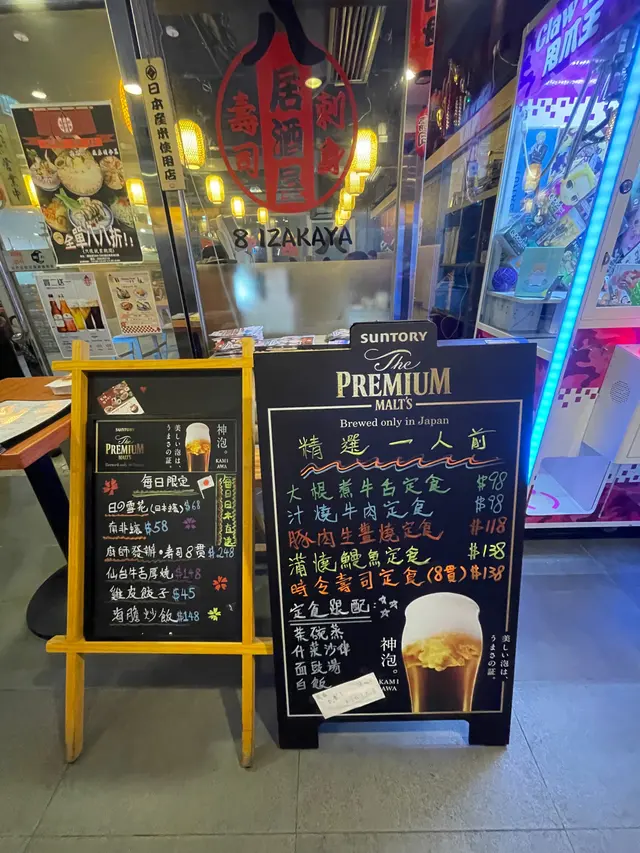 Claw
日本産米使用店
八
居酒屋
寿司
刺身
8 IZAKAYA
全單八八折!!
買二送一
SUNTORY
The
PREMIUM
MALT'S
Brewed only in Japan
美しい泡は、
うまさの証。
神泡。
KAMI
AWA
每日限定
每日日本直送
日の雪花(日本蠔) $68
$58
廚師發辦・壽司8貫 $248
仙台牛舌厚燒 $148
雞皮餃子 $45
海膽炒飯 $148
SUNTORY
The
PREMIUM
MALT'S
Brewed only in Japan
精選一人前
大根煮牛舌定食 $98
汁燒牛肉定食 $98
豚肉生薑燒定食 $118
蒲燒鰻魚定食 $138
時令壽司定食(8貫) $138
定食跟配:
茶碗蒸
什菜沙律
麵豉湯
白飯
神泡。
KAMI
AWA
美しい泡は、
うまさの証。